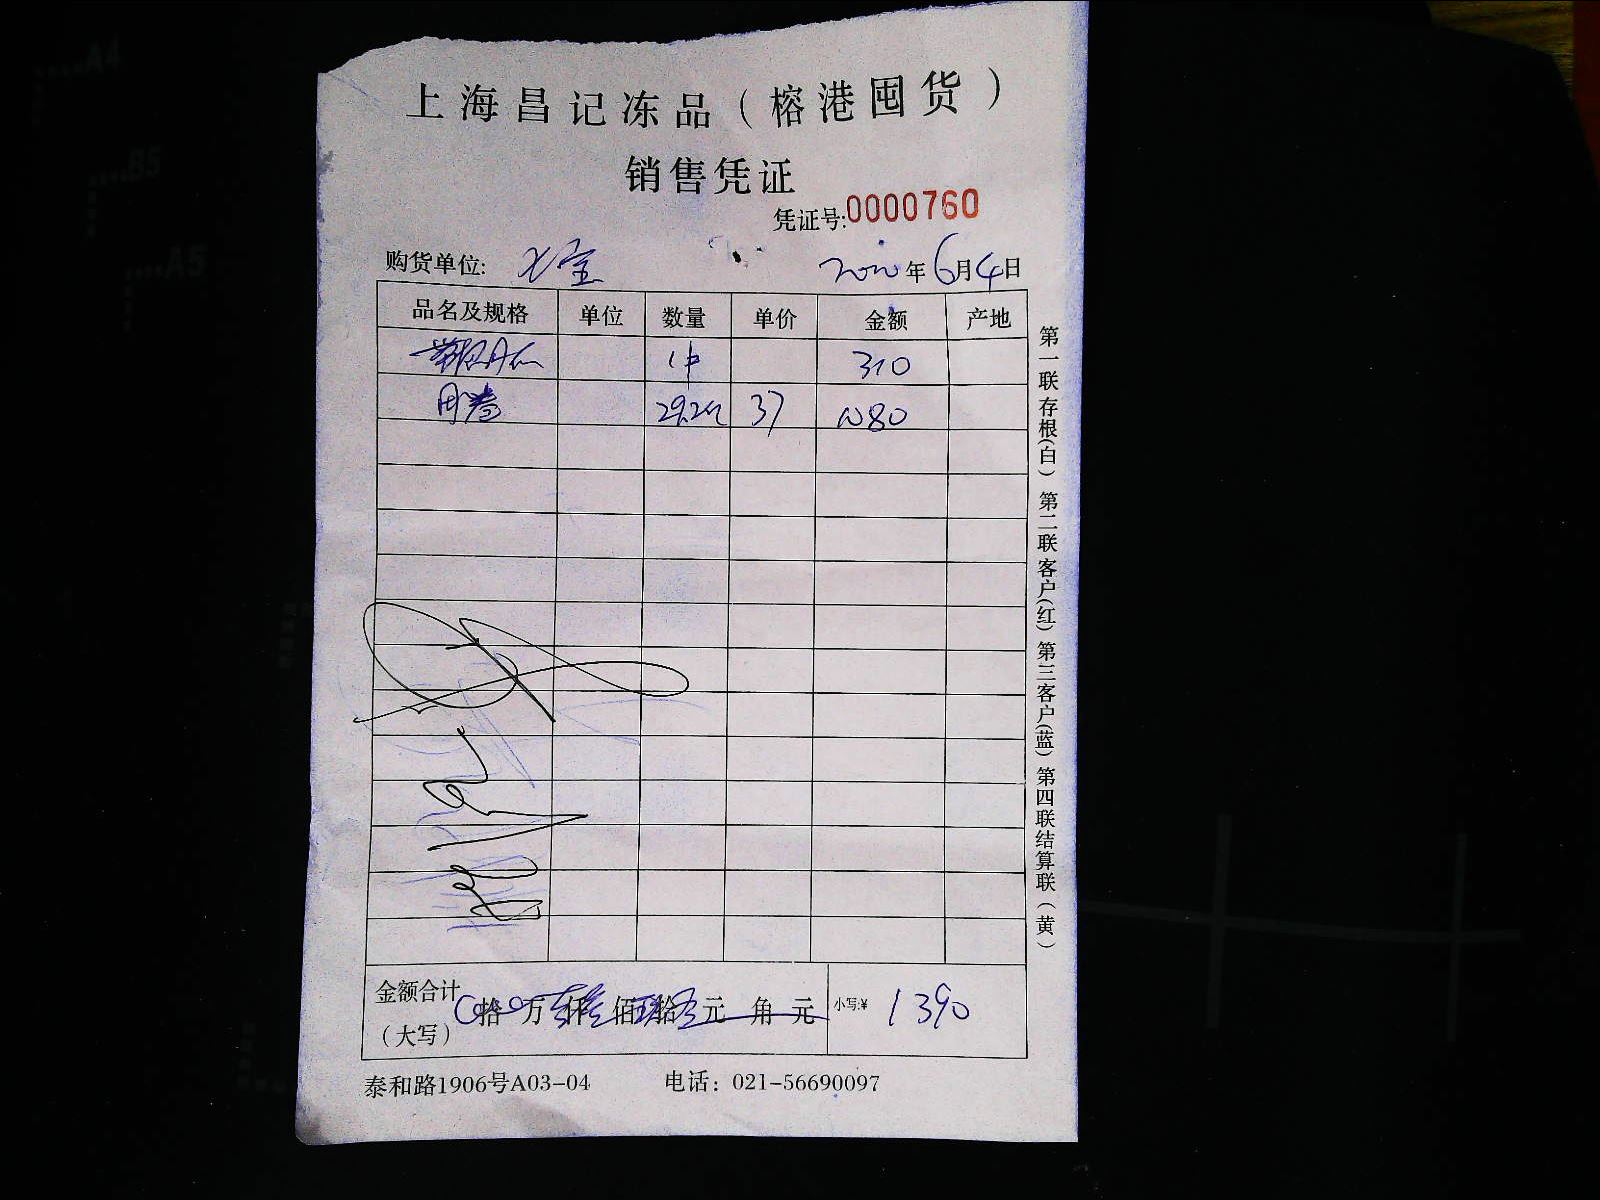 上海昌记冻品（榕港囤货）
销售凭证
凭证号:0000760
购货单位: 七宝 2020年6月4日
品名及规格 单位 数量 单价 金额 产地
1件 310
29.2 37 1080
金额合计（大写） 拾 万 仟 佰 拾 元 角 元 小写:¥ 1390
泰和路1906号A03-04 电话：021-56690097
第一联存根(白) 第二联客户(红) 第三客户(蓝) 第四联结算联（黄）
A4
B5
A5